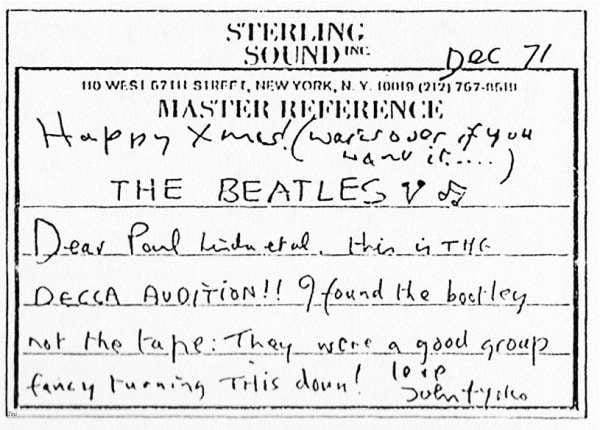 STERLING
SOUND INC.
Dec 71
110 WEST 57TH STREET, NEW YORK, N.Y. 10019 (212) 757-8519
MASTER REFERENCE
Happy Xmas! (war is over if you
want it....)
THE BEATLES
Dear Paul Linda et al. this is THE
DECCA AUDITION!! I found the bootleg
not the tape: They were a good group
fancy turning THIS down!
love
John + yoko